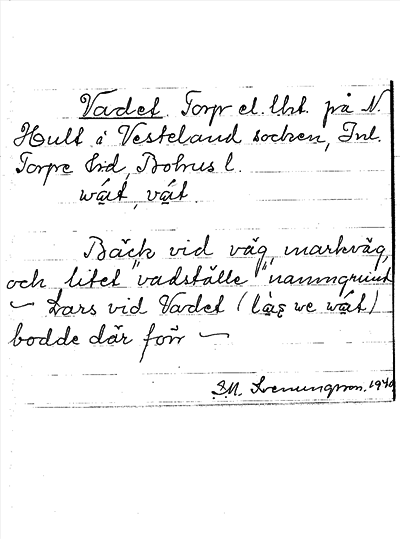 Vadet. Torp el. lht. på N.
Hult i Vesteland socken, Inl.
Torpe hd, Bohus l.
wát, vát.
Bäck vid väg, markväg,
och litet "vadställe" namngrund
– Lars vid Vadet (làs we wát)
bodde där förr –
S.M. Svenungsson. 1940